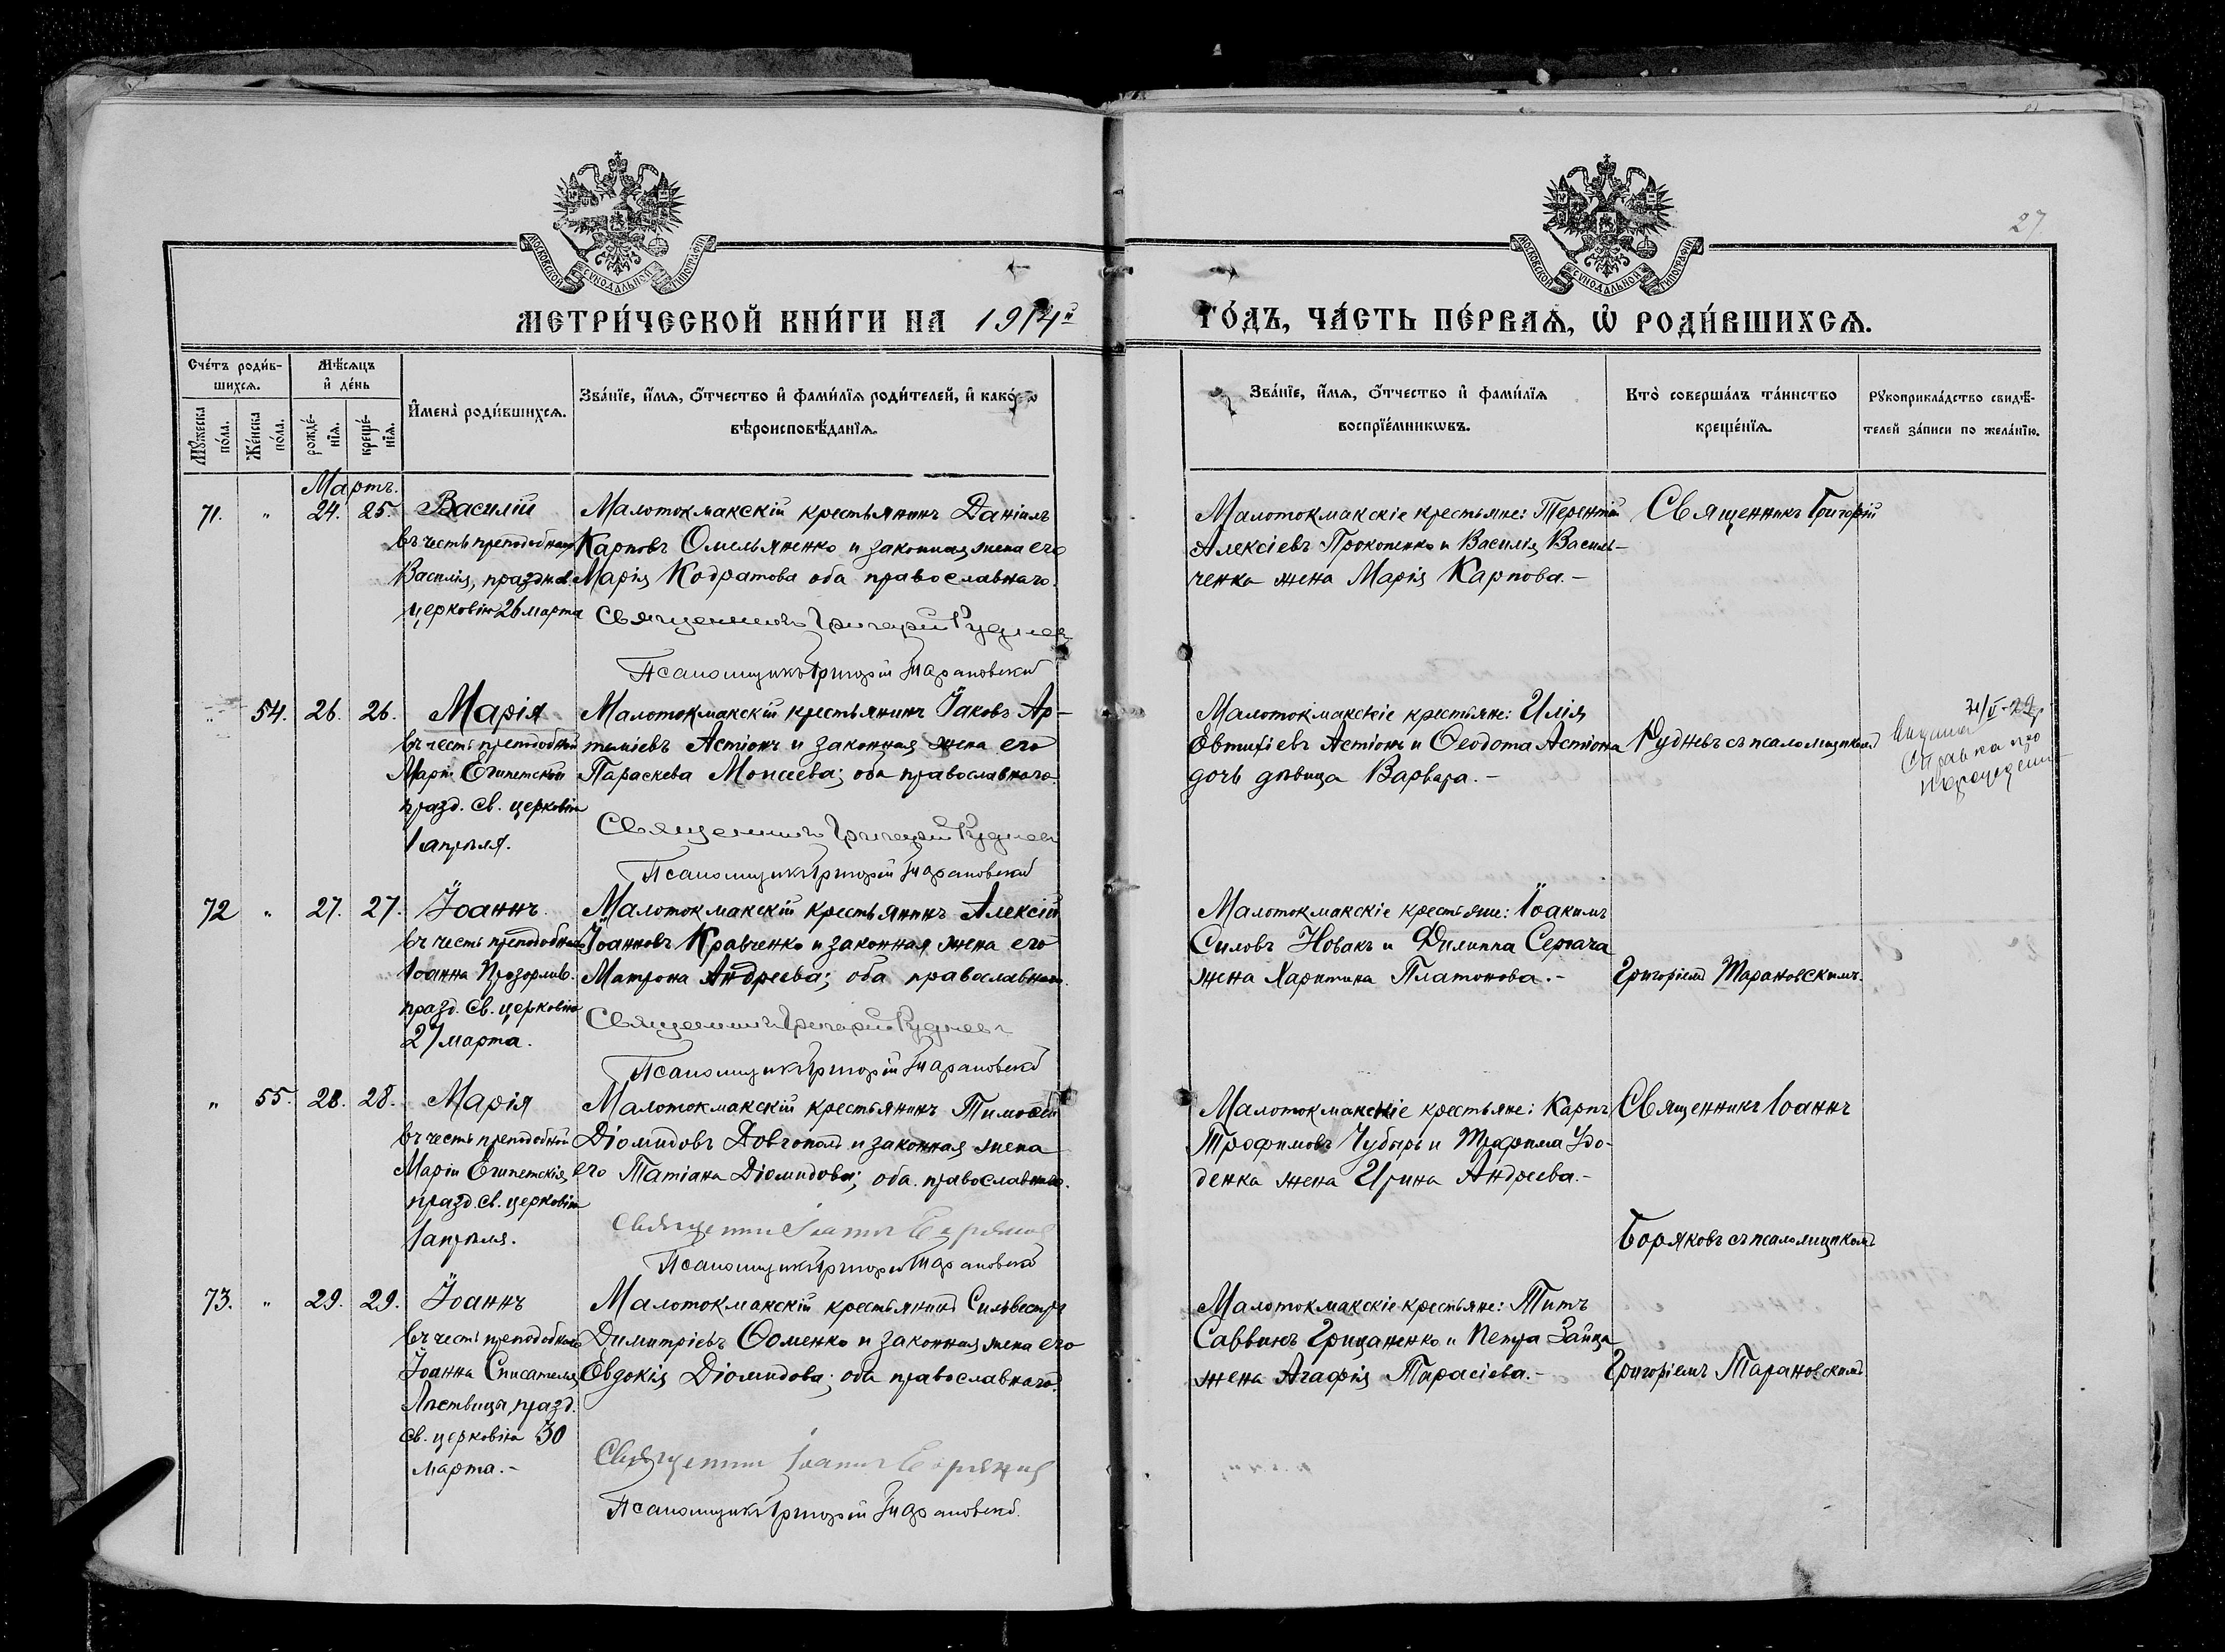 27
МОСКОВСКОЙ СѴНОДАЛЬНОЙ ТИПОГРАФІИ
МОСКОВСКОЙ СѴНОДАЛЬНОЙ ТИПОГРАФІИ
МЕТРИ́ЧЕСКОЙ КНИ́ГИ НА 1914й
ГО́ДЪ, ЧА́СТЬ ПЕ́РВАѦ, Ѡ҆ РОДИ́ВШИХСѦ.
Сче́тъ роди́в-
шихсѧ.
Мꙋ́жеска по́ла.
Же́нска по́ла.
Мѣ́сѧцъ
и҆ де́нь
рожде́-нїѧ.
креще́-нїѧ.
И҆мена̀ роди́вшихсѧ.
Зва́нїе, и҆́мѧ, ѻ҆́тчество и҆ фами́лїѧ роди́телей, и҆ како́гѡ
вѣроисповѣ́данїѧ.
Зва́нїе, и҆́мѧ, ѻ҆́тчество и҆ фами́лїѧ
воспрїе́мникѡвъ.
Кто̀ соверша́лъ та́инство
креще́нїѧ.
Рꙋкоприкла́дство свидѣ́-
телей за́писи по жела́нїю.
Мартъ.
71. " 24. 25. Василій
въ честь преподобнаго
Василія, празднов.
церковію 26 марта
Малотокмакскій крестьянинъ Даніилъ
Карповъ Омельяненко и законная жена его
Марія Кодратова оба православнаго.
Священникъ Григорій Руднев
Псаломщикъ Григорій Тарановскій
Малотокмакскіе крестьяне: Терентій
Алексіевъ Прокопенко и Василія Василь-
ченка жена Марія Карпова.-
Священникъ Григорій
" 54. 26. 26. Марія
въ честь преподобной
Маріи Египетской
празд. св. церковію
1 апрѣля.
Малотокмакскій крестьянинъ Іаковъ Ар-
теміевъ Астіонъ и законная жена его
Параскева Моисеева; оба православнаго.
Священникъ Григорій Руднев
Псаломщикъ Григорій Тарановскій
Малотокмакскіе крестьяне: Илія
Евтихіевъ Астіонъ и Ѳеодота Астіона
дочь дѣвица Варвара.-
Рудневъ съ псаломщикомъ
справка про
72 " 27. 27. Іоаннъ.
въ честь преподобнаго
Іоанна Прозорлив.
празд. св. церковію
27 марта.
Малотокмакскій крестьянинъ Алексій
Іоанновъ Кравченко и законная жена его
Матрона Андреева; оба православнаго.
Священникъ Григорій Рудневъ
Псаломщикъ Григорій Тарановскій
Малотокмакскіе крестьяне: Іоакимъ
Силовъ Новакъ и Филиппа Сергача
жена Харитина Платонова.-
Григоріемъ Тарановскимъ.
" 55. 28. 28. Марія
въ честь преподобной
Маріи Египетскія,
празд. св. церковію
1 апрѣля.
Малотокмакскій крестьянинъ Тимоѳей
Діомидовъ Довгополъ и законная жена
его Татіана Діомидова; оба православнаго.
Священникъ Іоаннъ Боряковъ
Псаломщикъ Григорій Тарановскій
Малотокмакскіе крестьяне: Карпъ
Трофимовъ Чубырь и Трофима Удо-
денка жена Ирина Андреева.-
Священникъ Іоаннъ
Боряковъ съ псаломщикомъ
73. " 29. 29. Іоаннъ
въ честь преподобнаго
Іоанна Списателя
Лѣствицы, празд.
св. церковію 30
марта.-
Малотокмакскій крестьянинъ Сильвестръ
Димитріевъ Ѳоменко и законная жена его
Евдокія Діомидова; оба православнаго.
Священникъ Іоаннъ Боряковъ
Псаломщикъ Григорій Тарановскій.
Малотокмакскіе крестьяне: Титъ
Саввинъ Грицаненко и Петра Зайца
жена Агафія Тарасіева.-
Григоріемъ Тарановскимъ